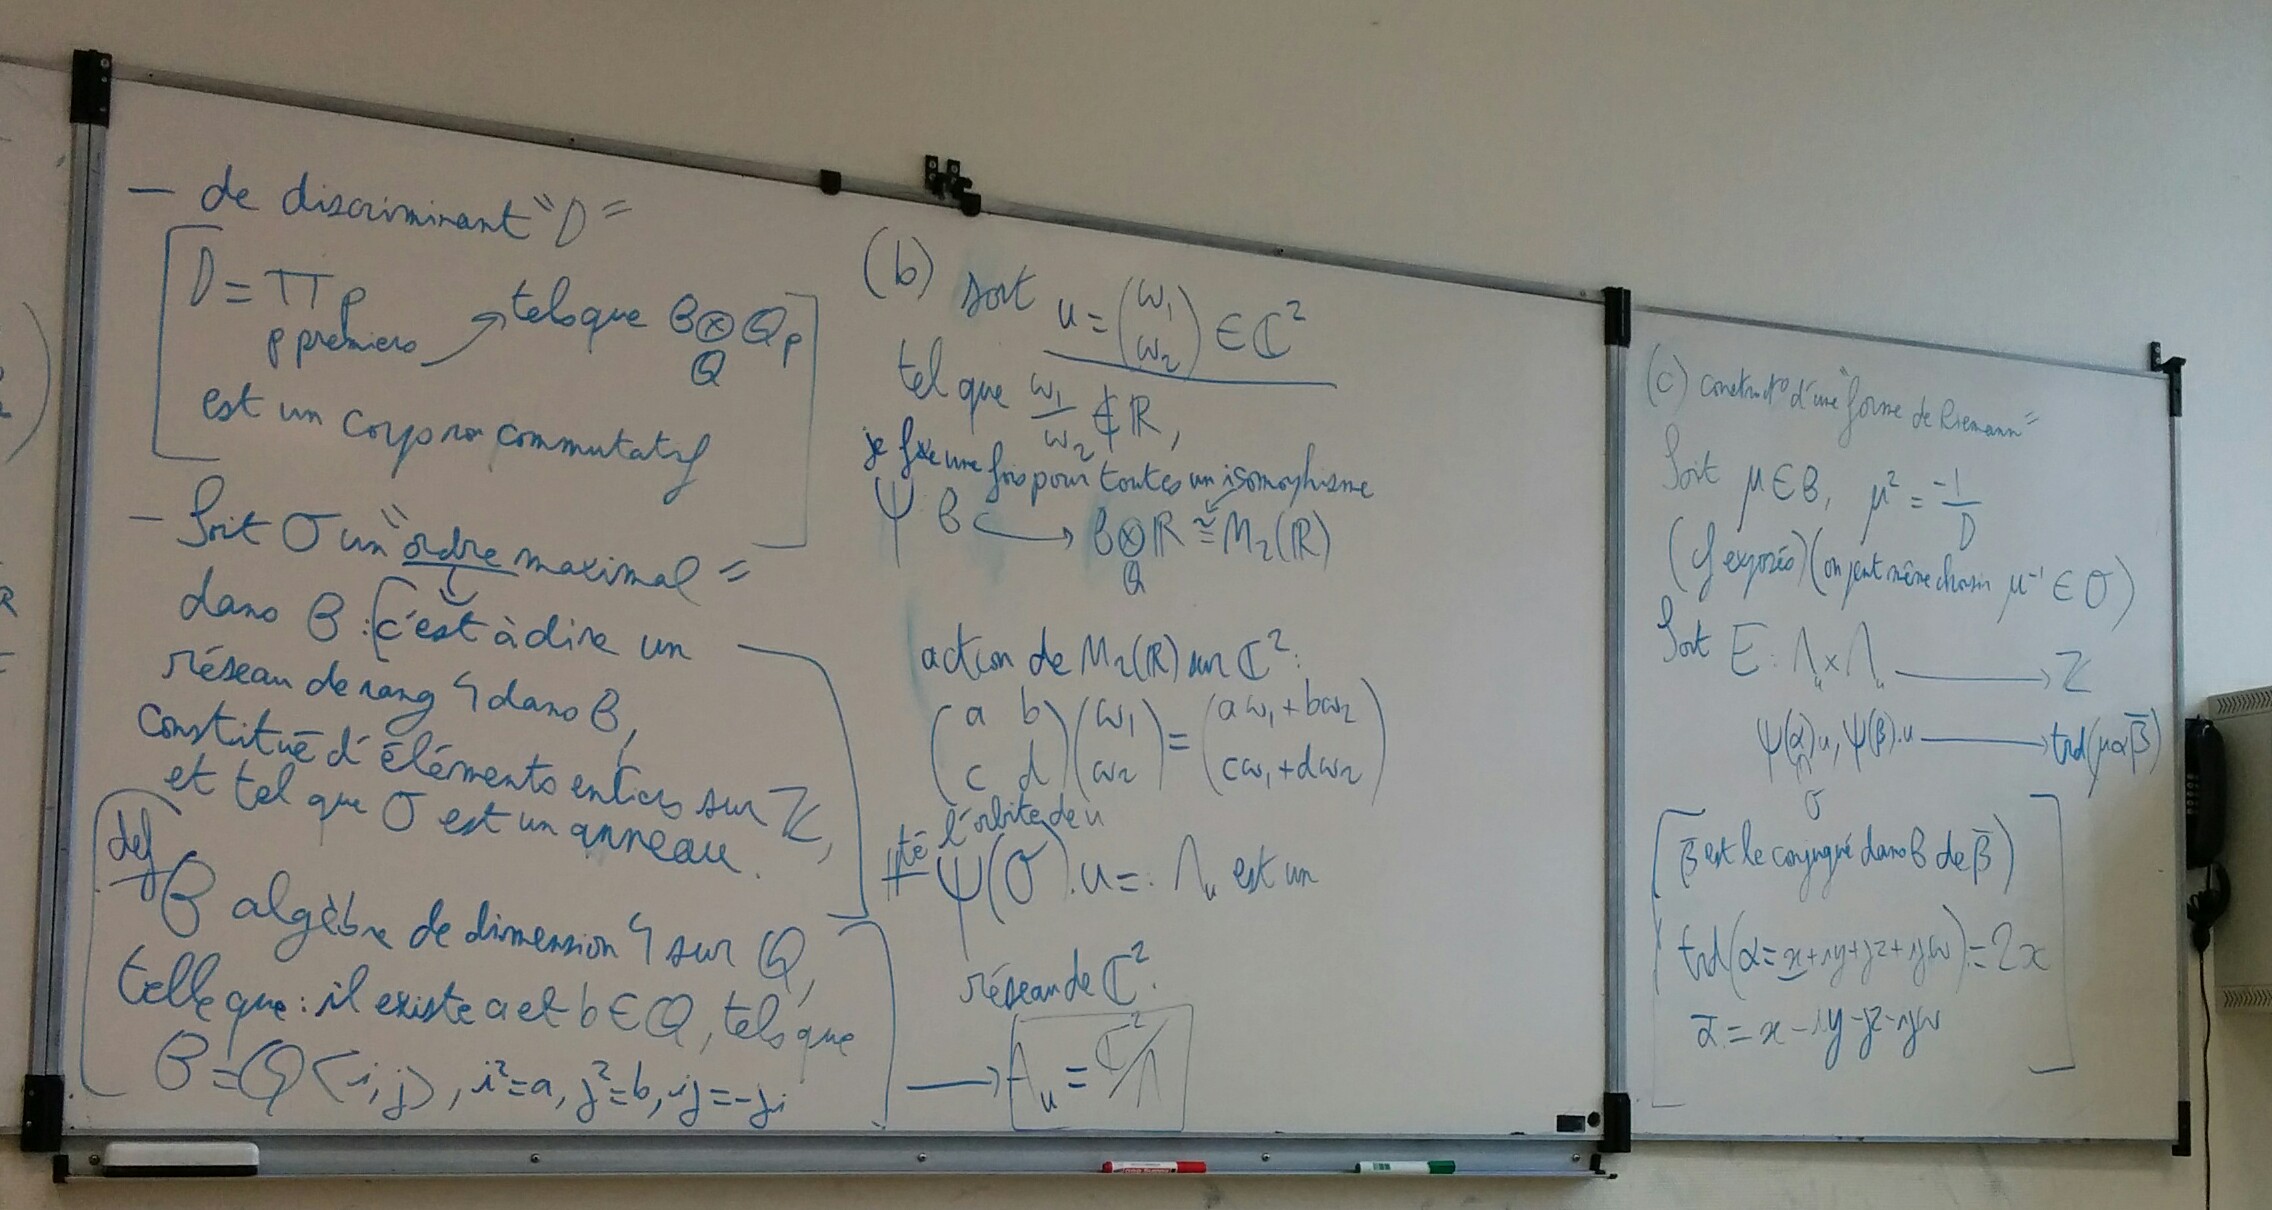 — de discriminant "D"
D = ∏ p
p premiers → tels que B ⊗ Q_p
Q
est un corps non commutatif
— Soit O un "ordre maximal"
dans B : c'est à dire un
réseau de rang 4 dans B,
constitué d'éléments entiers sur Z,
et tel que O est un anneau.
def
B algèbre de dimension 4 sur Q,
telle que : il existe a et b ∈ Q, tels que
B = Q<i,j>, i² = a, j² = b, ij = -ji
(b) soit u = (ω₁ ω₂) ∈ C²
tel que ω₁/ω₂ ∉ R,
je fixe une fois pour toutes un isomorphisme
Ψ B ↪ B ⊗ R ≅ M₂(R)
Q
action de M₂(R) sur C² :
(a b) (ω₁) = (aω₁ + bω₂)
(c d) (ω₂) = (cω₁ + dω₂)
té l'orbite de u
Ψ(O).u =: Λ_u est un
réseau de C².
→ A_u = C²/Λ
(c) construct° d'une "forme de Riemann"
Soit μ ∈ B, μ² = -1/D
(cf exposés) (on peut même choisir μ⁻¹ ∈ O)
Soit E : Λ_u × Λ_u → Z
Ψ(α)u, Ψ(β).u → trd(μαβ̄)
∩
O
β̄ est le conjugué dans B de β̄)
trd(α = x+iy+jz+ijw) = 2x
ᾱ = x - iy - jz - ijw